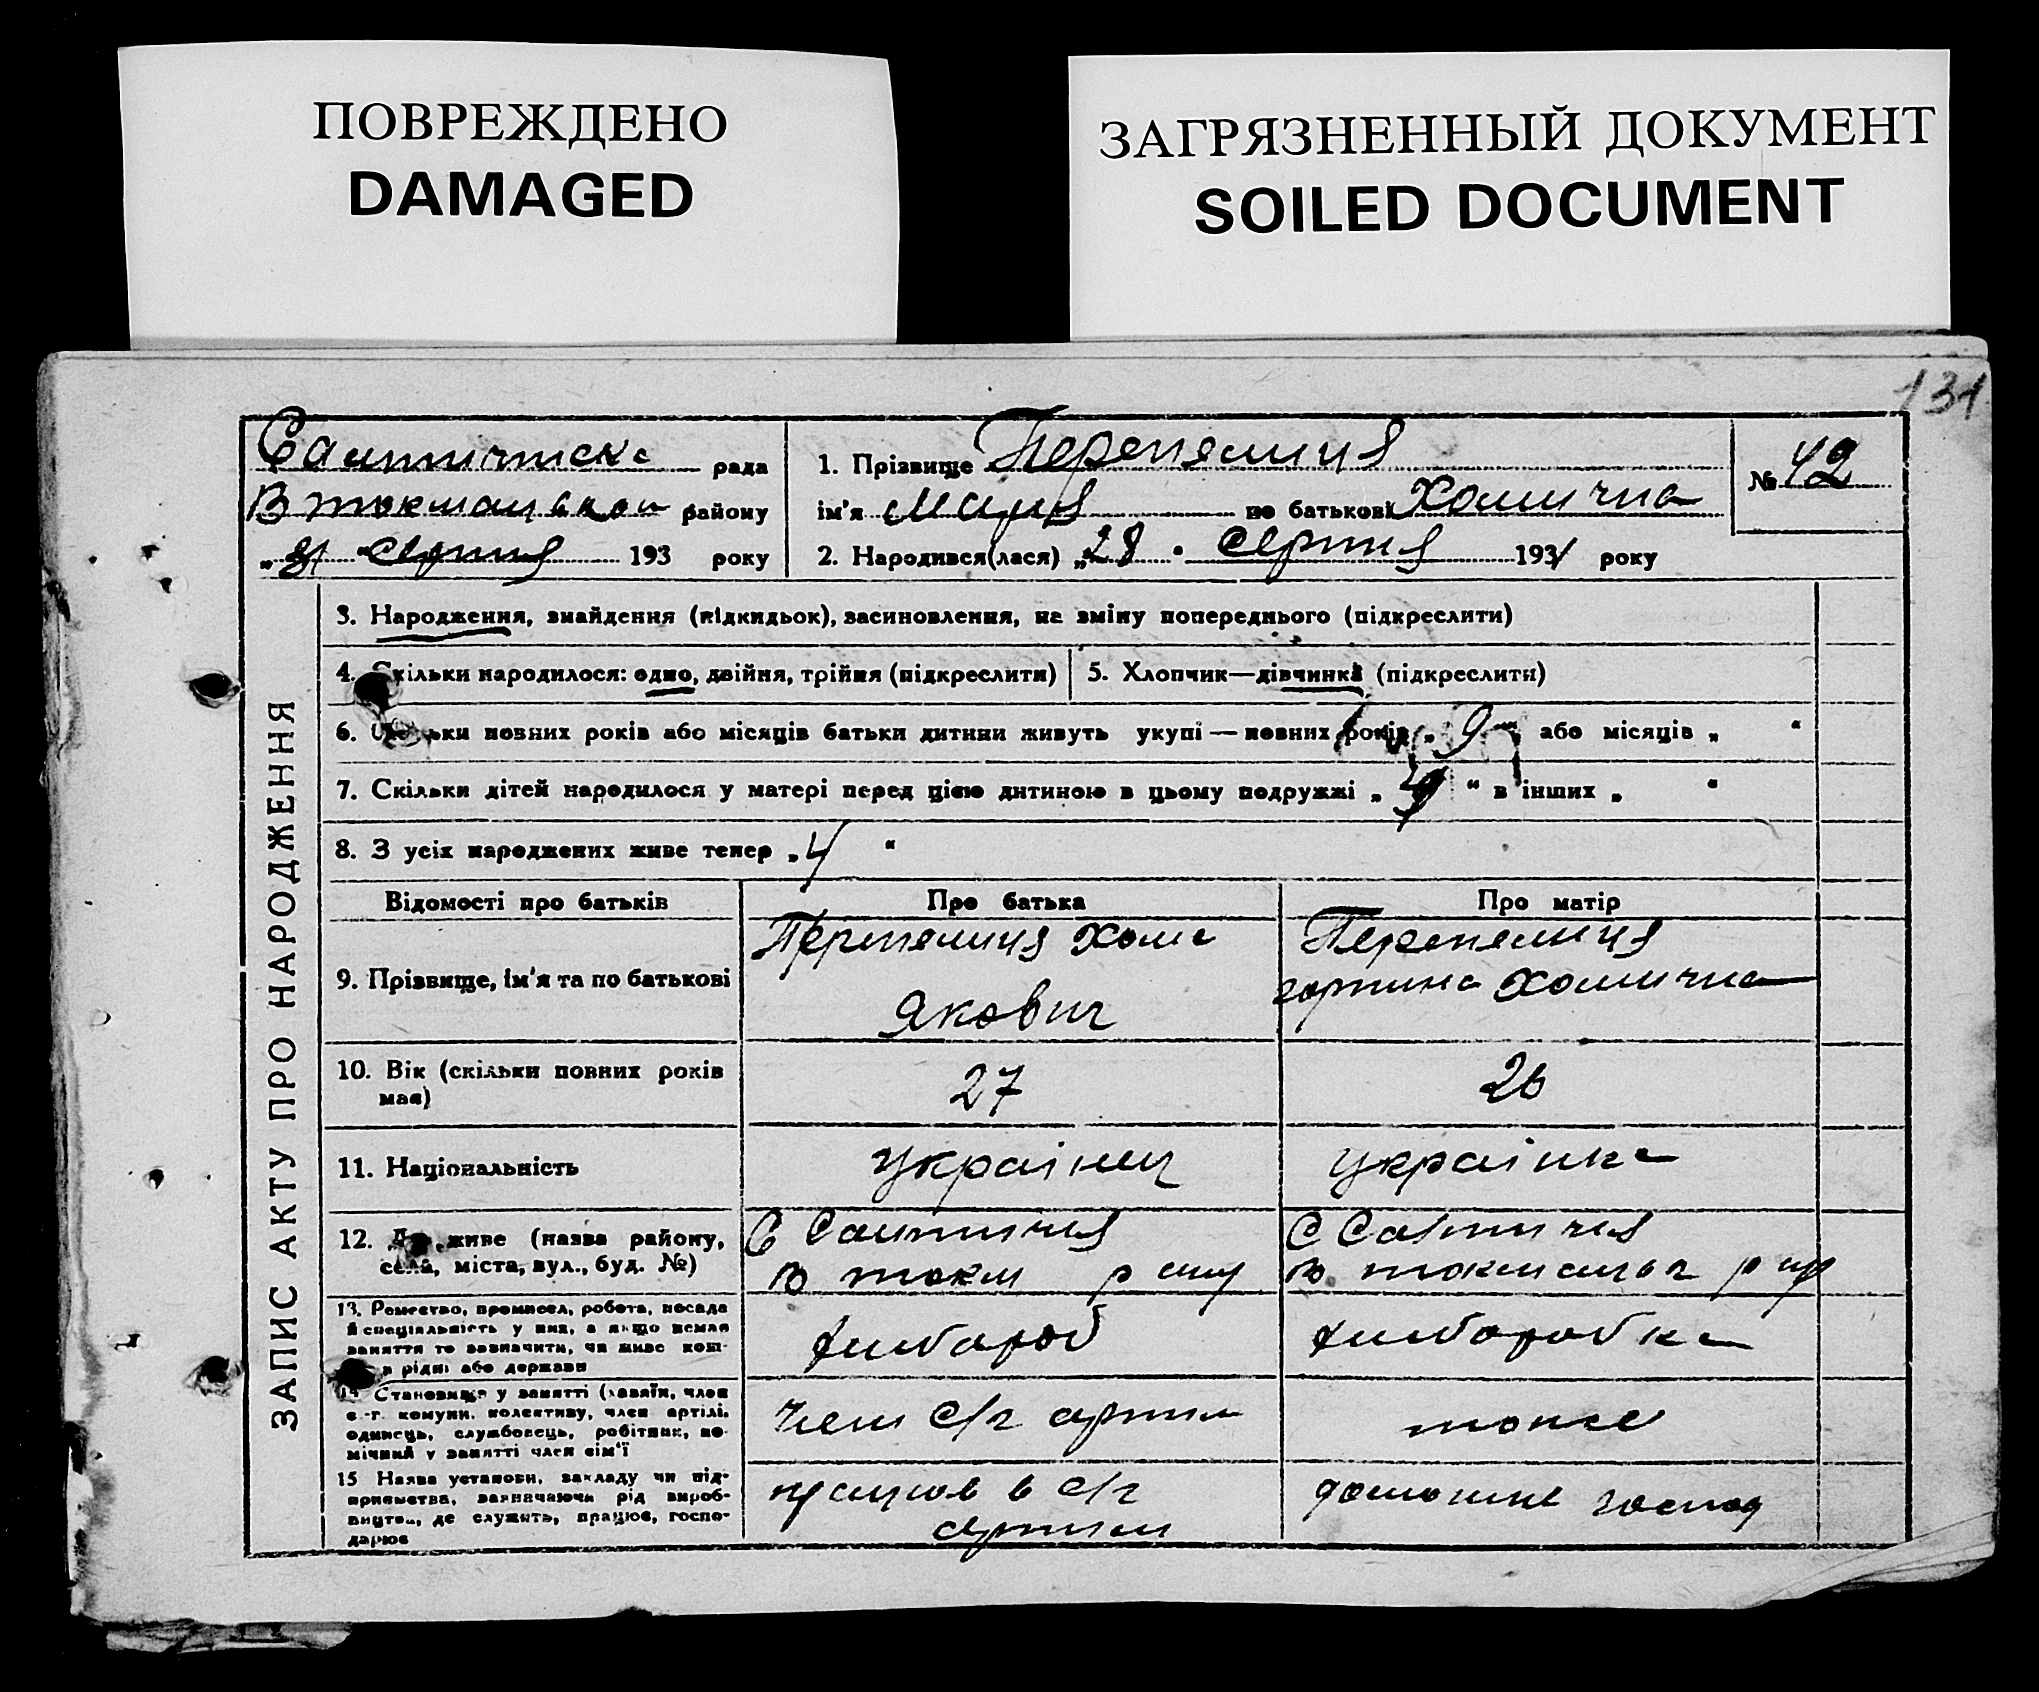 ПОВРЕЖДЕНО
DAMAGED
ЗАГРЯЗНЕННЫЙ ДОКУМЕНТ
SOILED DOCUMENT
131
рада
району
31 серпня 193 року
1. Прізвище Перепелиця
ім'я Марія по батькові Хомична
2. Народився(лася) „28 " серпня 1931 року
№ 42
ЗАПИС АКТУ ПРО НАРОДЖЕННЯ
3. Народження, знайдення (підкидьок), засиновлення, на зміну попереднього (підкреслити)
4. Скільки народилося: одно, двійня, трійня (підкреслити)
5. Хлопчик—дівчинка (підкреслити)
6. Скільки повних років або місяців батьки дитини живуть укупі — повних років „ 9 " або місяців „ "
7. Скільки дітей народилося у матері перед цією дитиною в цьому подружжі „ " в інших „ "
8. З усіх народжених живе тепер „ 4 "
Відомості про батьків
Про батька
Про матір
9. Прізвище, ім'я та по батькові
Перепелиця Хома
Якович
Перепелиця
Хомична
10. Вік (скільки повних років
має)
27
26
11. Національність
українец
українка
12. Де живе (назва району,
села, міста, вул., буд. №)
С
В токм р
С
В р
13. Ремество, промисел, робота, посада
й спеціяльність у них, а якщо немає
заняття то зазначити, чи живе кош-
рідні або держави
хлібороб
хлібо­робка
14 Становище у занятті (хазяїн, член
с.-г. комуни, колективу, член артілі,
одинець, службовець, робітник, по-
мічний у занятті член сім'ї
член с/г артіл
тоже
15 Назва установи, закладу чи під-
приємства, зазначаючи рід вироб-
ництва, де служить, працює, госпо-
дарює
в с/г
артіли
домашнє господ